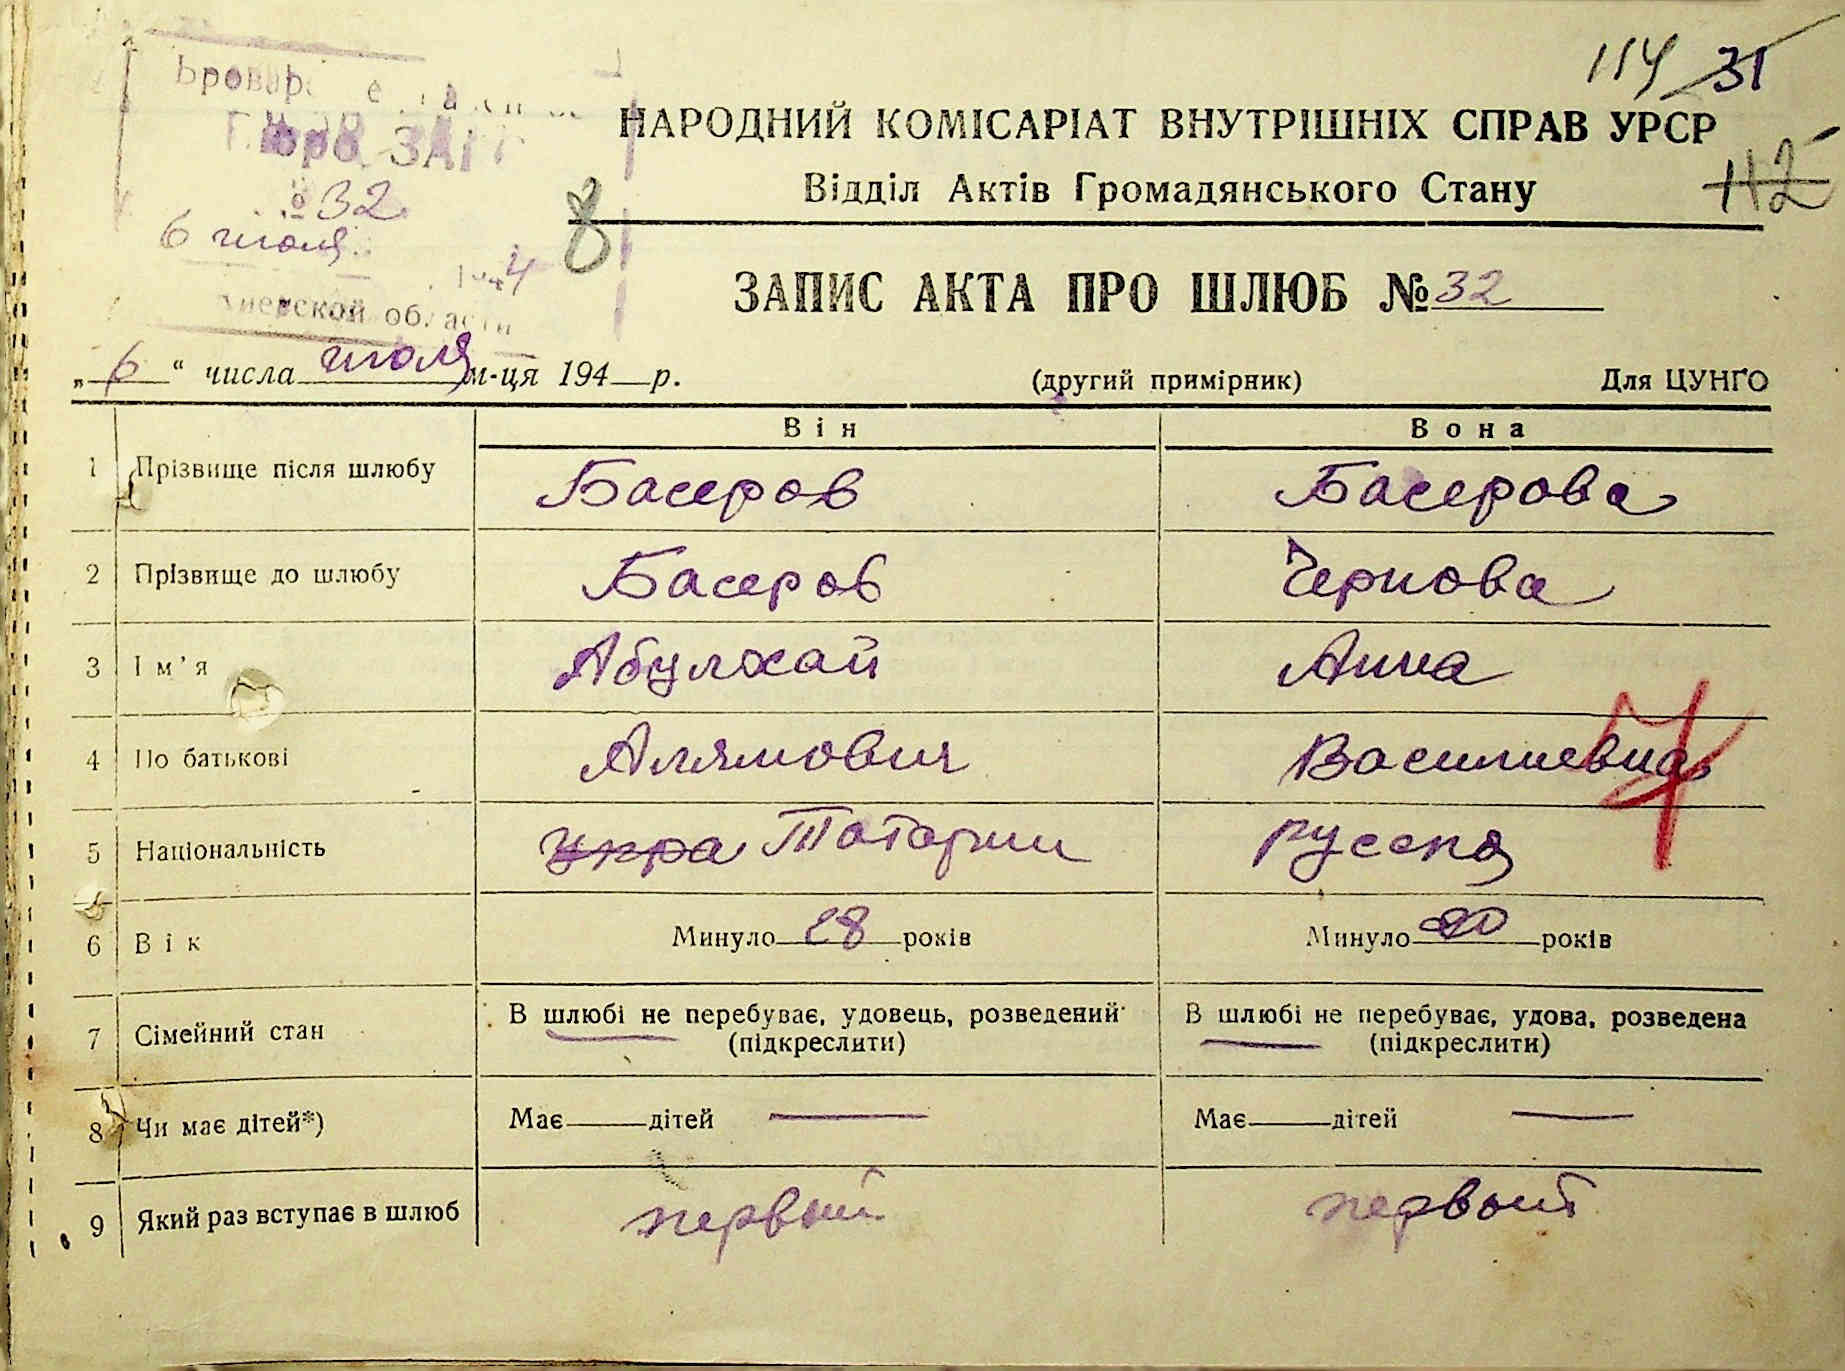 114 31
Бюро ЗАГС
№ 32
6 июля
1944
Киевской области
8
НАРОДНИЙ КОМІСАРІАТ ВНУТРІШНІХ СПРАВ УРСР
112
Відділ Актів Громадянського Стану
ЗАПИС АКТА ПРО ШЛЮБ № 32
„ 6 “ числа июля м-ця 194 р. (другий примірник) Для ЦУНГО
Він Вона
1 Прізвище після шлюбу Басеров Басерова
2 Прізвище до шлюбу Басеров Чернова
3 Ім'я Абулхай Анна
4 По батькові Алямович Василиевна
5 Національність укра Татарин русская
6 Вік Минуло 28 років Минуло 20 років
7 Сімейний стан В шлюбі не перебуває, удовець, розведений (підкреслити) В шлюбі не перебуває, удова, розведена (підкреслити)
8 Чи має дітей*) Має — дітей — Має — дітей —
9 Який раз вступає в шлюб первый первый